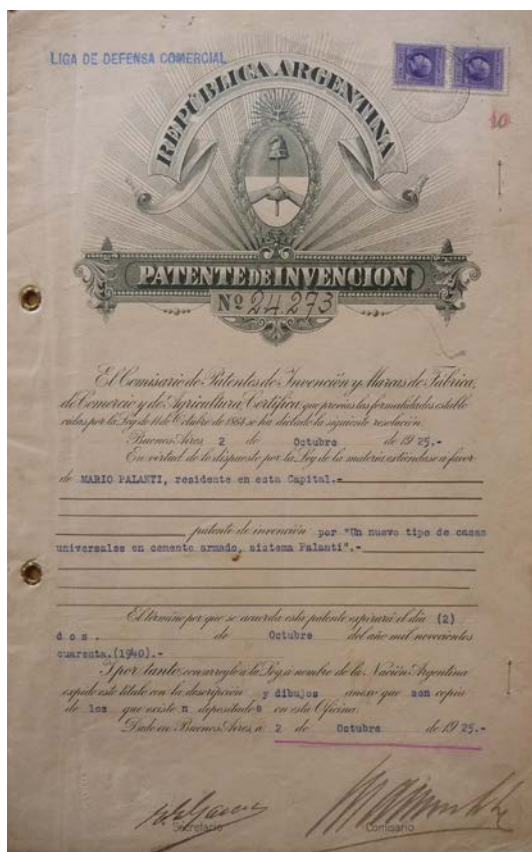 LIGA DE DEFENSA COMERCIAL
REPÚBLICA ARGENTINA
10
PATENTE DE INVENCION
Nº 24.273
El Comisario de Patentes de Invención y Marcas de Fábrica,
de Comercio y de Agricultura, Certifica: que previas las formalidades estable
cidas por la Ley de 11 de Octubre de 1864 se ha dictado la siguiente resolución
Buenos Aires, 2 de Octubre de 1925.-
En virtud de lo dispuesto por la Ley de la materia extiéndase a favor
de MARIO PALANTI, residente en esta Capital.-
patente de invención por "Un nuevo tipo de casas
universales en cemento armado, sistema Palanti".-
El término por que se acuerda esta patente expirará el día (2)
dos. de Octubre del año mil novecientos
cuarenta.(1940).-
Y por tanto, con arreglo a la Ley, a nombre de la Nación Argentina
expido este título con la descripción y dibujos anexo que son copia
de los que existe n depositado s en esta Oficina.
Dado en Buenos Aires, a 2 de Octubre de 1925.-
Secretario
Comisario